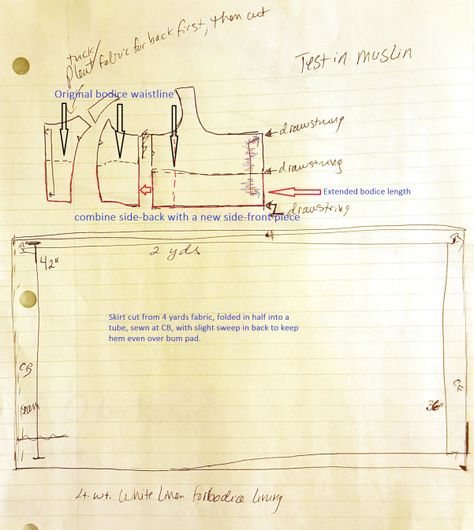 tuck/
pleat fabric for back first, then cut
Test in muslin
Original bodice waistline
drawstring
drawstring
Extended bodice length
drawstring
combine side-back with a new side-front piece
2 yds
42"
Skirt cut from 4 yards fabric, folded in half into a
tube, sewn at CB, with slight sweep in back to keep
hem even over bum pad.
CB
seam
36"
Lt. wt. White Linen for bodice lining